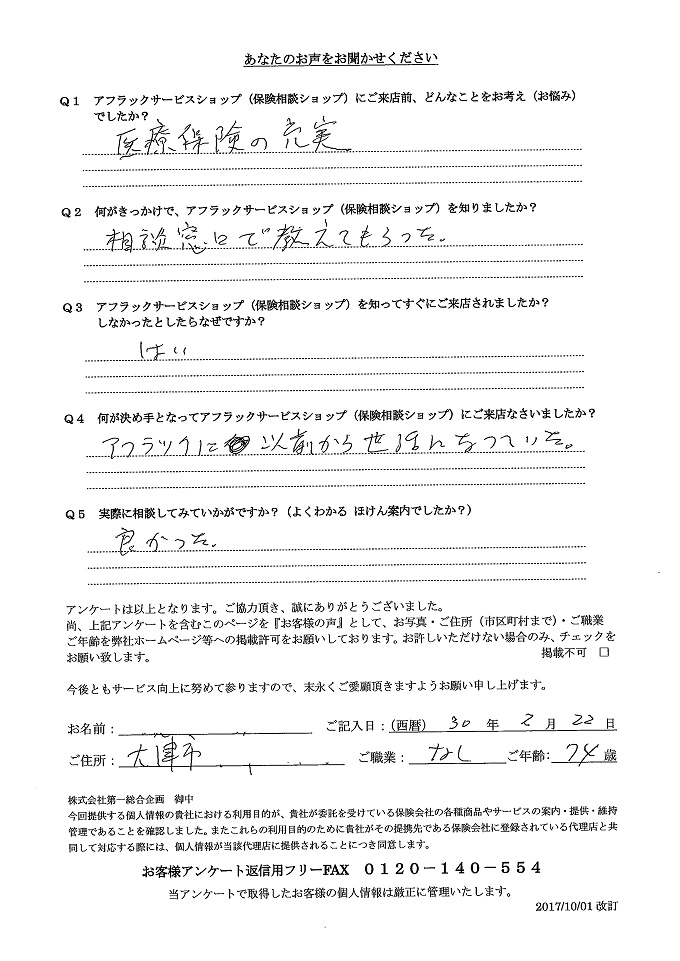 あなたのお声をお聞かせください
Q1 アフラックサービスショップ（保険相談ショップ）にご来店前、どんなことをお考え（お悩み）
でしたか？
医療保険の充実
Q2 何がきっかけで、アフラックサービスショップ（保険相談ショップ）を知りましたか？
相談窓口で教えてもらった。
Q3 アフラックサービスショップ（保険相談ショップ）を知ってすぐにご来店されましたか？
しなかったとしたらなぜですか？
はい
Q4 何が決め手となってアフラックサービスショップ（保険相談ショップ）にご来店なさいましたか？
アフラックに以前から世話になっていた。
Q5 実際に相談してみていかがですか？（よくわかる ほけん案内でしたか？）
良かった。
アンケートは以上となります。ご協力頂き、誠にありがとうございました。
尚、上記アンケートを含むこのページを『お客様の声』として、お写真・ご住所（市区町村まで）・ご職業
ご年齢を弊社ホームページ等への掲載許可をお願いしております。お許しいただけない場合のみ、チェックを
お願い致します。 掲載不可 □
今後ともサービス向上に努めて参りますので、末永くご愛顧頂きますようお願い申し上げます。
お名前： ご記入日：（西暦） 30 年 2 月 22 日
ご住所： 大津市 ご職業： なし ご年齢： 74 歳
株式会社第一総合企画 御中
今回提供する個人情報の貴社における利用目的が、貴社が委託を受けている保険会社の各種商品やサービスの案内・提供・維持
管理であることを確認しました。またこれらの利用目的のために貴社がその提携先である保険会社に登録されている代理店と共
同して対応する際には、個人情報が当該代理店に提供されることにつき同意します。
お客様アンケート返信用フリーFAX 0120-140-554
当アンケートで取得したお客様の個人情報は厳正に管理いたします。
2017/10/01 改訂